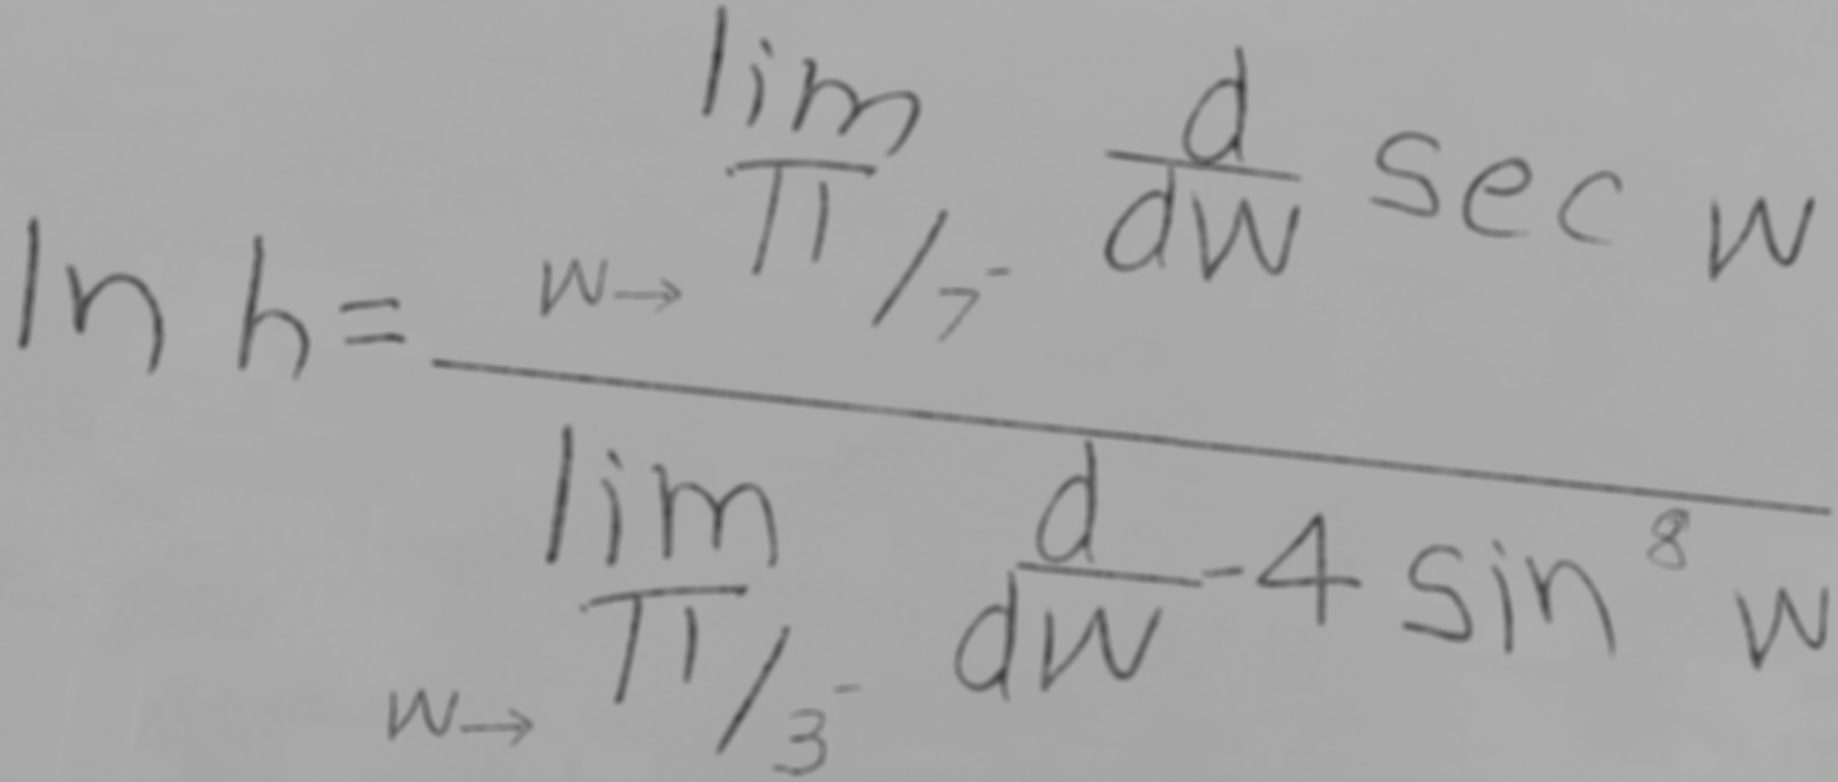 ln h = \frac{\lim_{w \to \pi/7^-} \frac{d}{dw} \sec w}{\lim_{w \to \pi/3^-} \frac{d}{dw} -4 \sin^8 w}